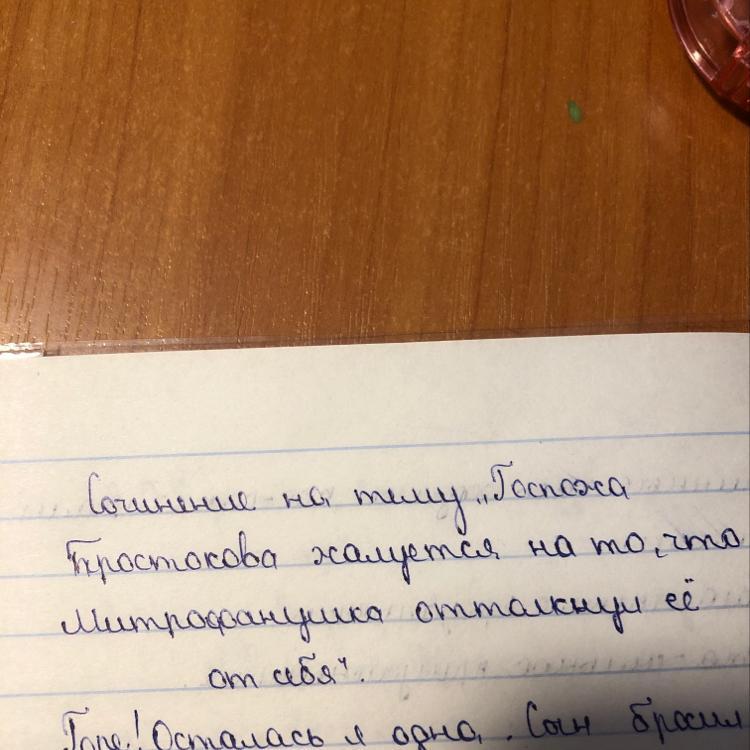 Сочинение на тему „Госпожа
Простокова жалуется на то, что
Митрофанушка оттолкнул её
от себя".
Горе! Осталась я одна. Сын бросил